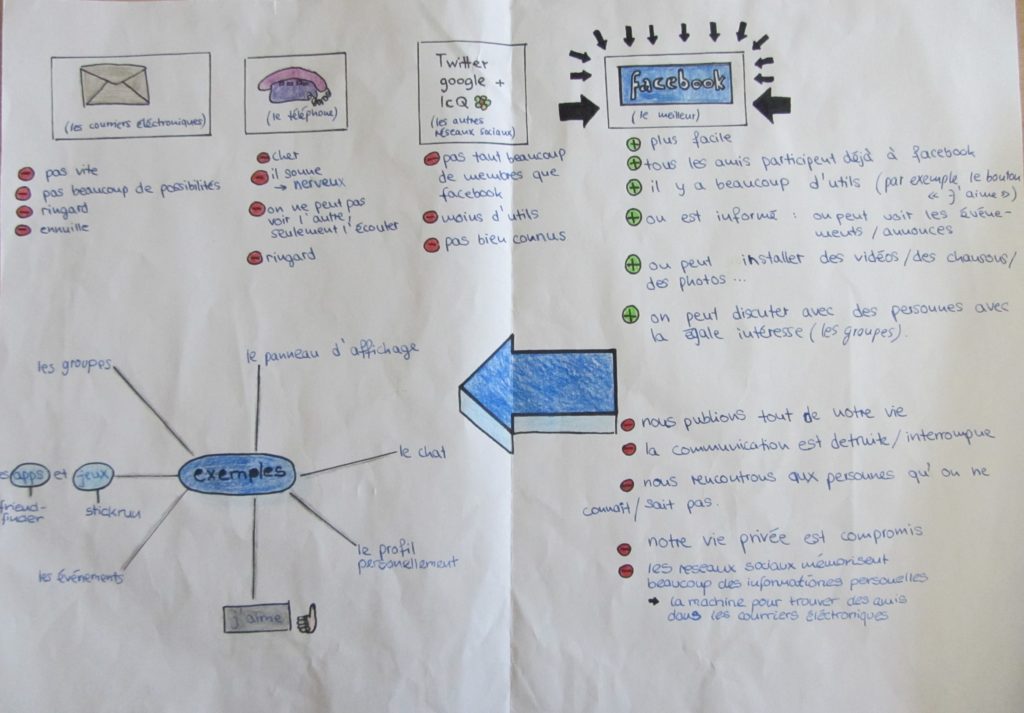 (les courriers éléctroniques)
pas vite
pas beaucoup de possibilités
ringard
ennuille
(le téléphone)
cher
il sonne
→ nerveux
on ne peut pas
voir l'autre,
seulement l'écouter
ringard
Twitter
google +
IcQ
(les autres
réseaux sociaux)
pas taut beaucoup
de membres que
facebook
moins d'utils
pas bien connus
facebook
(le meilleur)
plus facile
tous les amis participent déjà à facebook
il y a beaucoup d'utils (par exemple le bouton
« j'aime »)
on est informé : on peut voir les événe-
ments/annonces
on peut installer des vidéos/des chansons/
des photos ...
on peut discuter avec des personnes avec
la égale intéresse (les groupes).
nous publions tout de notre vie
la communication est detruite/interrompue
nous rencontrons aux personnes qu'on ne
connaît/sait pas.
notre vie privée est compromis
les reseaux sociaux mémorisent
beaucoup des informationes personelles
→ la machine pour trouver des amis
dans les courriers éléctroniques
exemples
les groupes
le panneau d'affichage
le chat
le profil
personellement
j'aime
les événements
apps et jeux
friend-
finder
stickrun